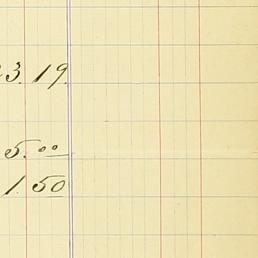 3.19.
5.00
1.50